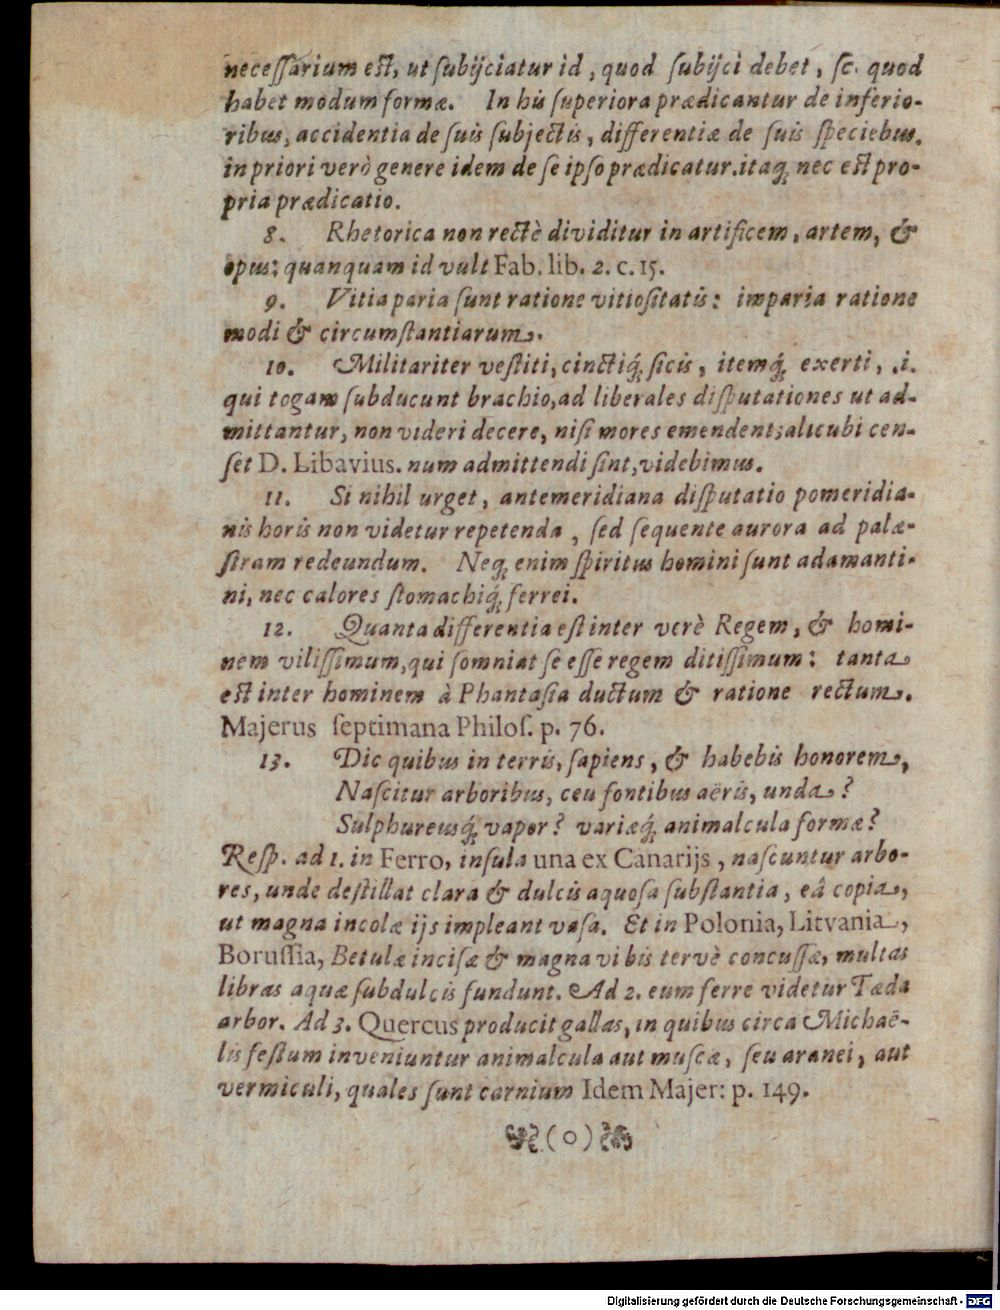 neceſſarium eſt, ut ſubijciatur id, quod ſubijci debet, ſc. quod
habet modum formæ. In his ſuperiora prædicantur de inferio-
ribus, accidentia de ſuis ſubjectis, differentiæ de ſuis ſpeciebus.
in priori verò genere idem de ſe ipſo prædicatur. itaq́; nec eſt pro-
pria prædicatio.
8. Rhetorica non rectè dividitur in artificem, artem, &
opus: quanquam id vult Fab. lib. 2. c. 15.
9. Vitia paria ſunt ratione vitioſitatis: imparia ratione
modi & circumſtantiarum.
10. Militariter veſtiti, cinctiq́; ſicis, itemq́; exerti, .i.
qui togam ſubducunt brachio, ad liberales diſputationes ut ad-
mittantur, non videri decere, niſi mores emendent; alicubi cen-
ſet D. Libavius. num admittendi ſint, videbimus.
11. Si nihil urget, antemeridiana diſputatio pomeridia-
nis horis non videtur repetenda, ſed ſequente aurora ad palæ-
ſtram redeundum. Neq; enim ſpiritus homini ſunt adamanti-
ni, nec calores ſtomachiq́; ferrei.
12. Quanta differentia eſt inter verè Regem, & homi-
nem viliſſimum, qui ſomniat ſe eſſe regem ditiſſimum: tanta
eſt inter hominem à Phantaſia ductum & ratione rectum.
Majerus ſeptimana Philoſ. p. 76.
13. Dic quibus in terris, ſapiens, & habebis honorem,
Naſcitur arboribus, ceu fontibus aëris, unda?
Sulphureusq́; vapor? variæq́; animalcula formæ?
Reſp. ad 1. in Ferro, inſula una ex Canarijs, naſcuntur arbo-
res, unde deſtillat clara & dulcis aquoſa ſubſtantia, eâ copia,
ut magna incolæ ijs impleant vaſa. Et in Polonia, Litvania,
Boruſſia, Betulæ inciſæ & magna vi bis tervè concuſſæ, multas
libras aquæ ſubdulcis fundunt. Ad 2. eum ferre videtur Tæda
arbor. Ad 3. Quercus producit gallas, in quibus circa Michaë-
lis feſtum inveniuntur animalcula aut muſcæ, ſeu aranei, aut
vermiculi, quales ſunt carnium Idem Majer: p. 149.
(o)
Digitalisierung gefördert durch die Deutsche Forschungsgemeinschaft - DFG